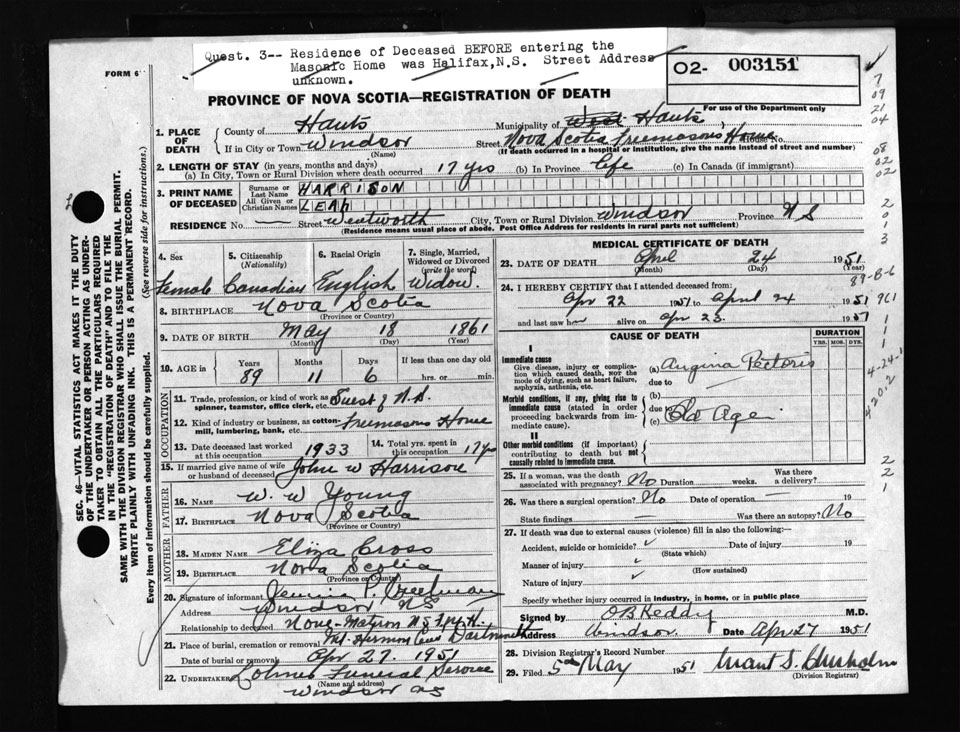 Quest. 3-- Residence of Deceased BEFORE entering the
Masonic Home was Halifax,N.S. Street Address
unknown.
FORM 6
O2- 003151
PROVINCE OF NOVA SCOTIA—REGISTRATION OF DEATH
For use of the Department only
1. PLACE OF DEATH
County of Hants
Municipality of West Hants
If in City or Town Windsor
(Name)
Street Nova Scotia Freemasons Home House No.
(If death occurred in a hospital or institution, give the name instead of street and number)
2. LENGTH OF STAY (in years, months and days)
(a) In City, Town or Rural Division where death occurred 17 yrs (b) In Province life (c) In Canada (if immigrant)
3. PRINT NAME OF DECEASED
Surname or Last Name HARRISON
All Given or Christian Names LEAH
RESIDENCE No. Street Wentworth City, Town or Rural Division Windsor Province N S
(Residence means usual place of abode. Post Office Address for residents in rural parts not sufficient)
4. Sex Female
5. Citizenship (Nationality) Canadian
6. Racial Origin English
7. Single, Married, Widowed or Divorced (write the word) Widow
8. BIRTHPLACE Nova Scotia
(Province or Country)
9. DATE OF BIRTH May 18 1861
(Month) (Day) (Year)
10. AGE in Years 89 Months 11 Days 6 If less than one day old hrs. or min.
OCCUPATION
11. Trade, profession, or kind of work as spinner, teamster, office clerk, etc. Guest of N.S.
12. Kind of industry or business, as cotton-mill, lumbering, bank, etc. Freemasons Home
13. Date deceased last worked at this occupation 1933
14. Total yrs. spent in this occupation 17 yrs
15. If married give name of wife or husband of deceased John W Harrison
FATHER
16. NAME W. W Young
17. BIRTHPLACE Nova Scotia
(Province or Country)
MOTHER
18. MAIDEN NAME Eliza Cross
19. BIRTHPLACE Nova Scotia
(Province or Country)
20. Signature of informant Jennie P.
Address Windsor N S
Relationship to deceased None - Matron N S F. M. H.
21. Place of burial, cremation or removal Mt. Hermon Cem Dartmouth
Date of burial or removal Apr 27. 1951
22. UNDERTAKER Funeral Service
(Name and address)
Windsor NS
MEDICAL CERTIFICATE OF DEATH
23. DATE OF DEATH April 24 1951
(Month) (Day) (Year)
24. I HEREBY CERTIFY that I attended deceased from:
Apr 22 1951 to April 24 1951
and last saw her alive on Apr 23 1951
CAUSE OF DEATH
DURATION
YRS. MOS. DYS.
I
Immediate cause
Give disease, injury or complication which caused death, NOT the mode of dying, such as heart failure, asphyxia, asthenia, etc.
(a) Angina Pectoris
due to
Morbid conditions, if any, giving rise to immediate cause (stated in order proceeding backwards from immediate cause).
(b)
due to
(c) Old Age
II
Other morbid conditions (if important) contributing to death but not causally related to immediate cause.
25. If a woman, was the death associated with pregnancy? No Duration weeks. Was there a delivery?
26. Was there a surgical operation? No Date of operation — 19
State findings — Was there an autopsy? No
27. If death was due to external causes (violence) fill in also the following:—
Accident, suicide or homicide? Date of injury 19
(State which)
Manner of injury
(How sustained)
Nature of injury
Specify whether injury occurred in industry, in home, or in public place
Signed by O B Keddy M.D.
Address Windsor Date Apr 27 1951
28. Division Registrar's Record Number
29. Filed 5th May 1951 Grant S. Chisholm
(Division Registrar)
SEC. 46—VITAL STATISTICS ACT MAKES IT THE DUTY
OF THE UNDERTAKER OR PERSON ACTING AS UNDERTAKER TO OBTAIN ALL THE PARTICULARS REQUIRED
IN THE "REGISTRATION OF DEATH" AND TO FILE THE
SAME WITH THE DIVISION REGISTRAR WHO SHALL ISSUE THE BURIAL PERMIT.
WRITE PLAINLY WITH UNFADING INK. THIS IS A PERMANENT RECORD.
Every item of information should be carefully supplied. (See reverse side for instructions.)
7
09
21
04
08
02
02
2
0
1
3
89-8-6
961
1
1
1
4-24-1
4202
2
2
1